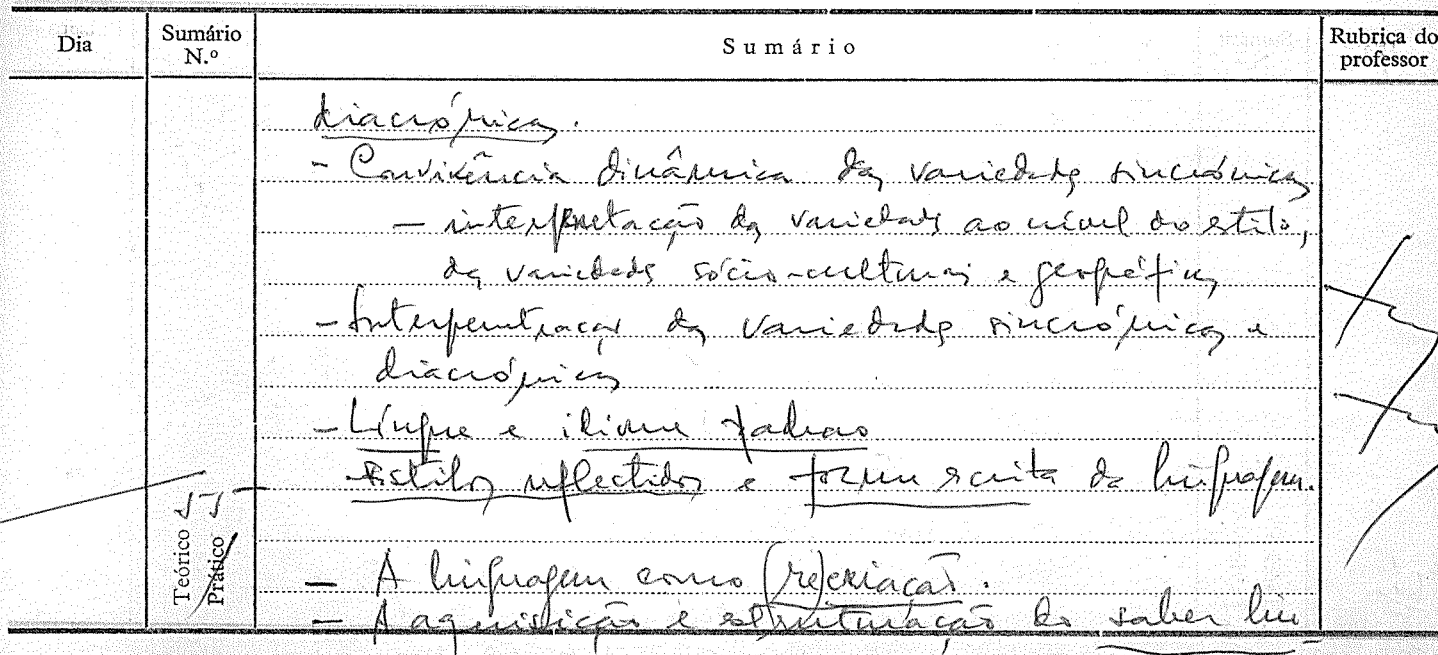 Dia
Sumário N.º
Sumário
Rubrica do professor
diacrónicas.
- Convivência dinâmica das variedades sincrónicas
- interpretação das variedades ao nível do estilo,
das variedades sócio-culturais e geográficas
- Interpenetração das variedades sincrónicas e
diacrónicas
- Língua e idioma padrão
- Estilos reflectidos e forma escrita da linguagem.
Teórico
Prático
- A linguagem como (re)criação.
- A aquisição e estruturação do saber lin